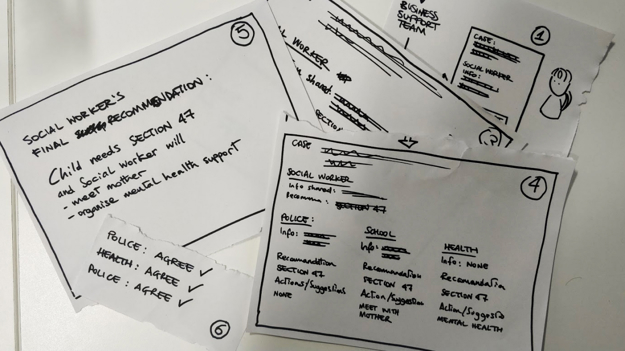 BUSINESS
SUPPORT
TEAM
1
CASE:
SOCIAL WORKER
INFO:
SOCIAL WORKER
shared:
SECTION
CASE
SOCIAL WORKER
Info shared:
Recomm:
SECTION 47
4
POLICE:
Info:
Recomandation
SECTION 47
Actions/Suggestios
NONE
SCHOOL
Info:
Recomandation
SECTION 47
Action/Suggestion
MEET WITH
MOTHER
HEALTH
Info: NONE
Recomandation
SECTION 47
Action/Suggestio
MENTAL HEALTH
5
SOCIAL WORKER'S
FINAL RECOMMENDATION:
Child needs SECTION 47
and Social Worker will
- meet mother
- organise mental health support
POLICE: AGREE ✓
HEALTH: AGREE ✓
POLICE: AGREE ✓
6